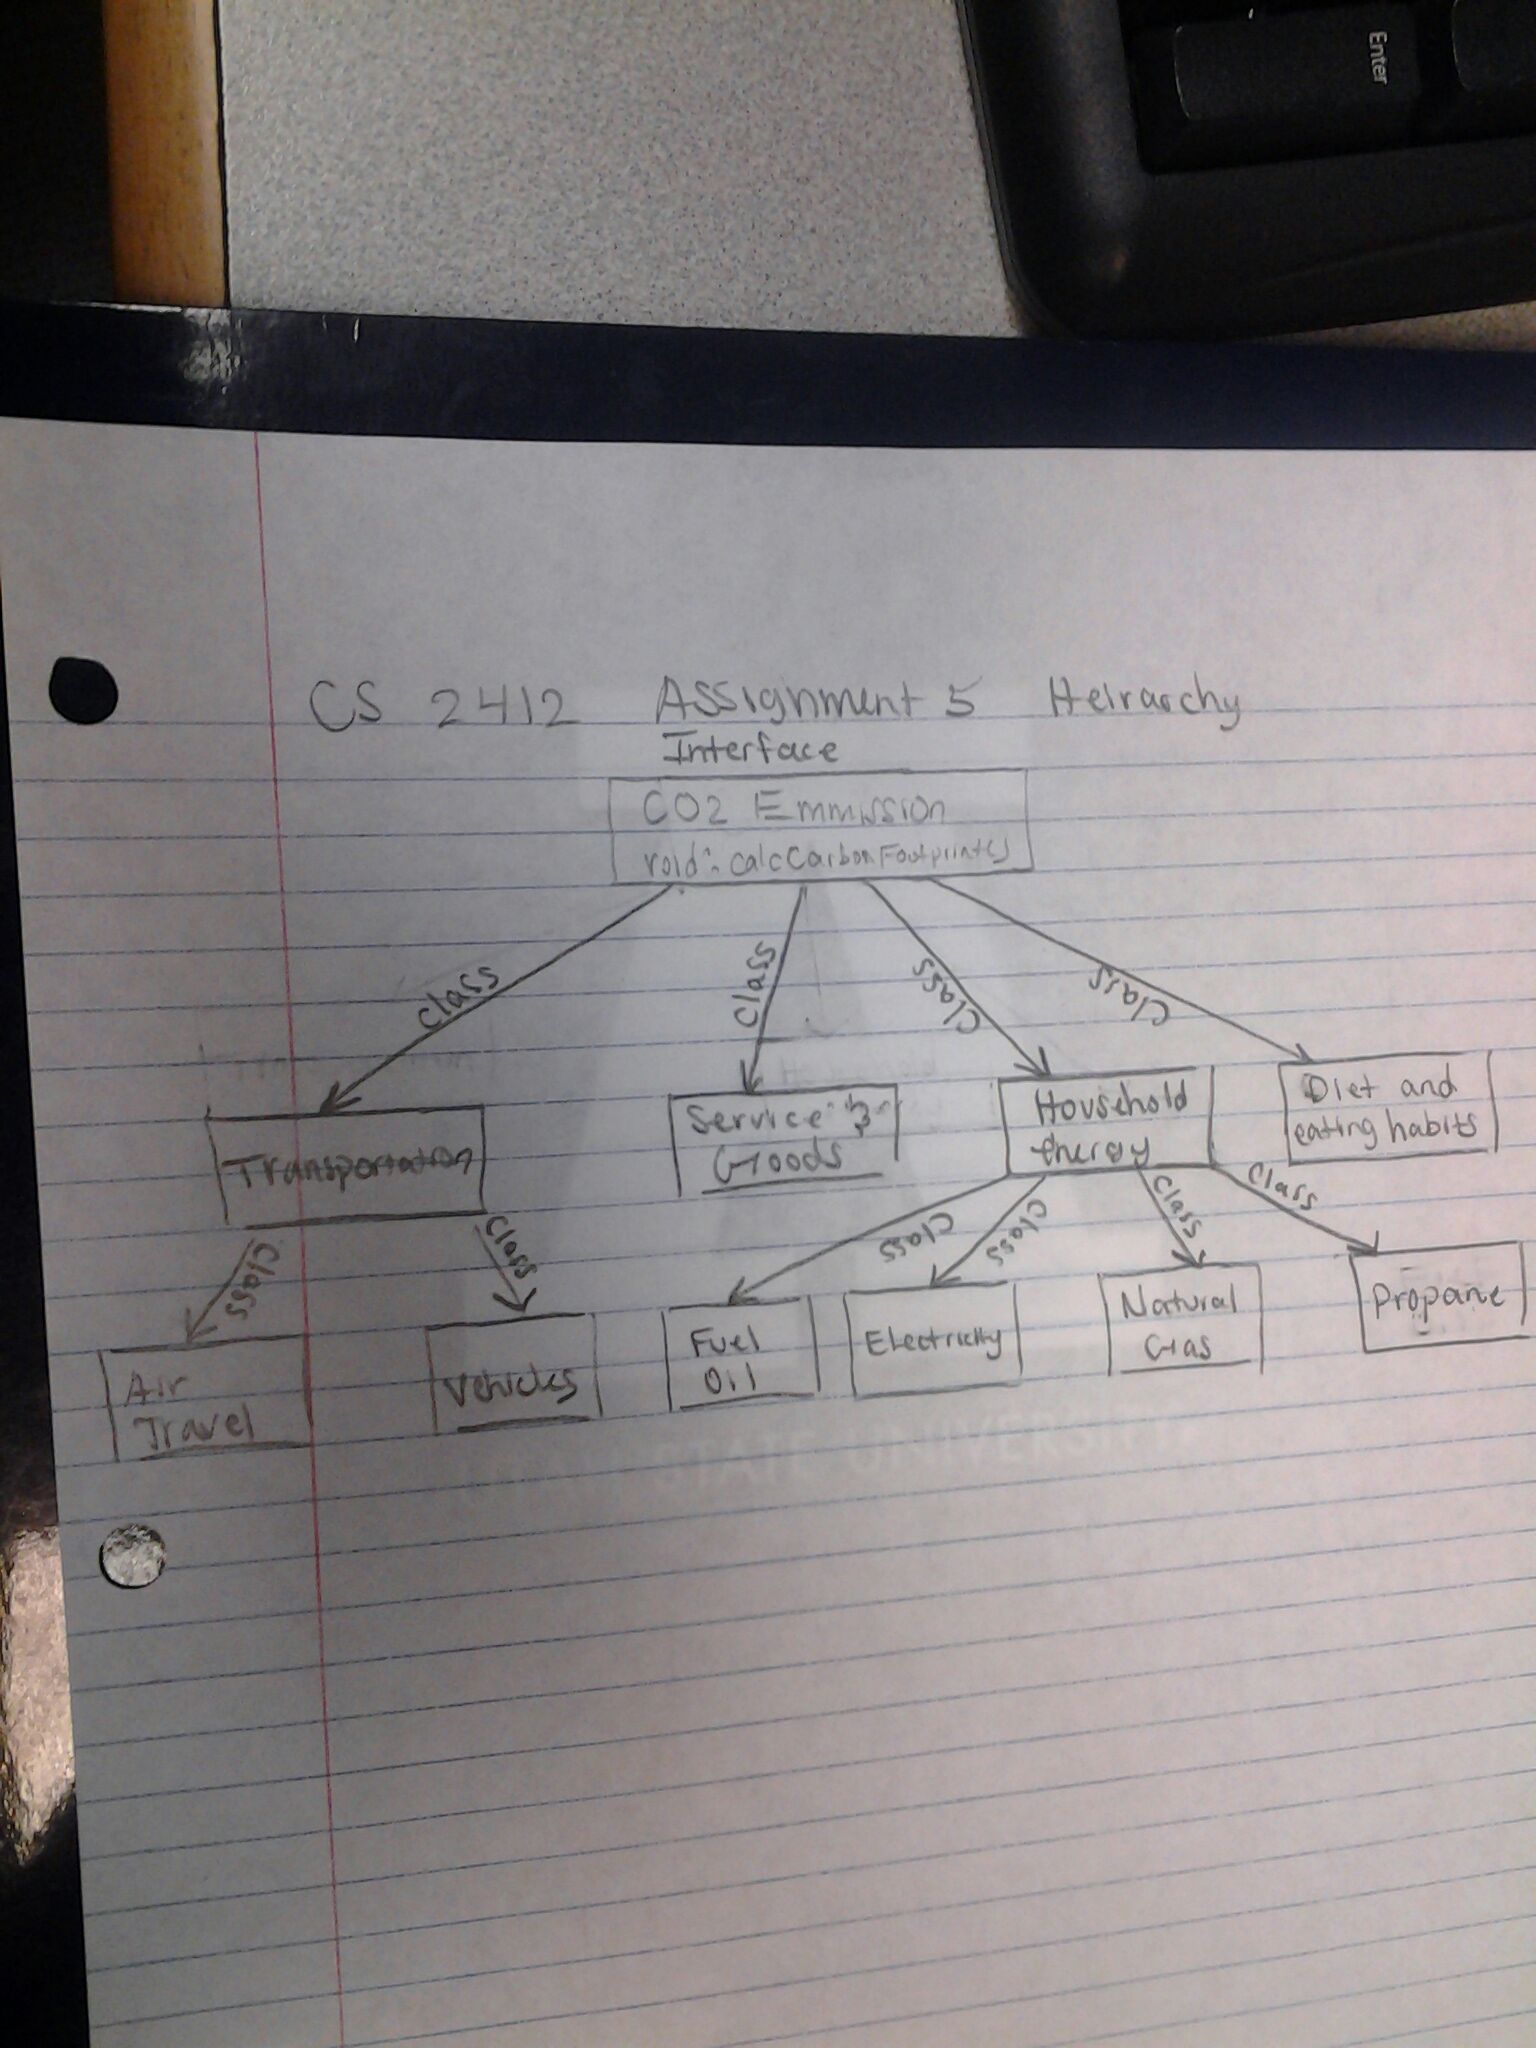 Enter
CS 2412 Assignment 5 Heirarchy
Interface
CO2 Emmission
void: calcCarbonFootprint()
class
class
class
class
Transportation
Service &
Goods
Household
energy
Diet and
eating habits
class
class
class
class
class
class
Air
Travel
Vehicles
Fuel
Oil
Electricity
Natural
Gas
Propane
STATE UNIVERSITY